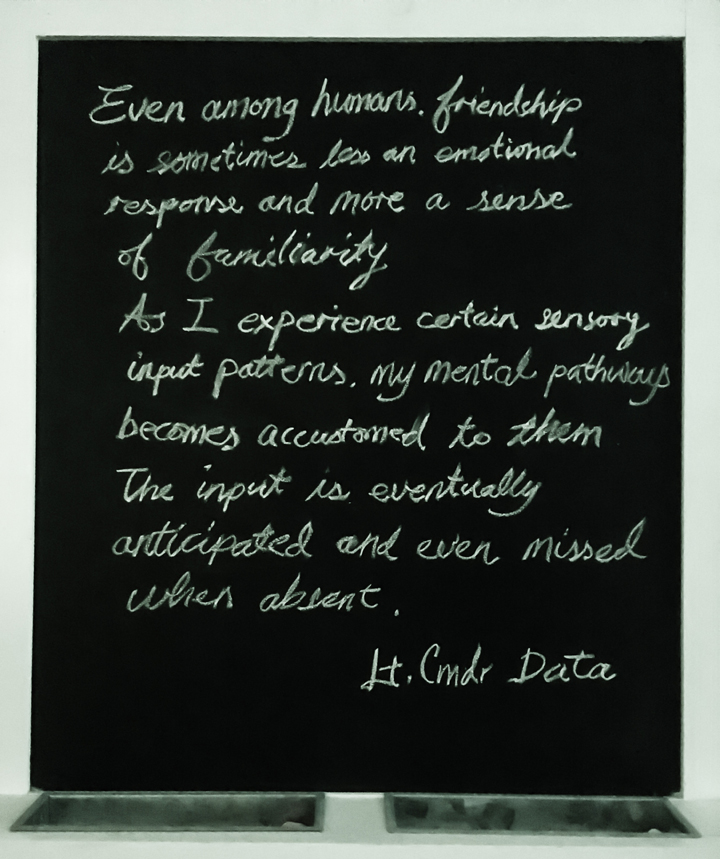 Even among humans. friendship
is sometimes less an emotional
response and more a sense
of familiarity
As I experience certain sensory
input patterns. my mental pathways
becomes accustomed to them
The input is eventually
anticipated and even missed
when absent.
Lt. Cmdr Data